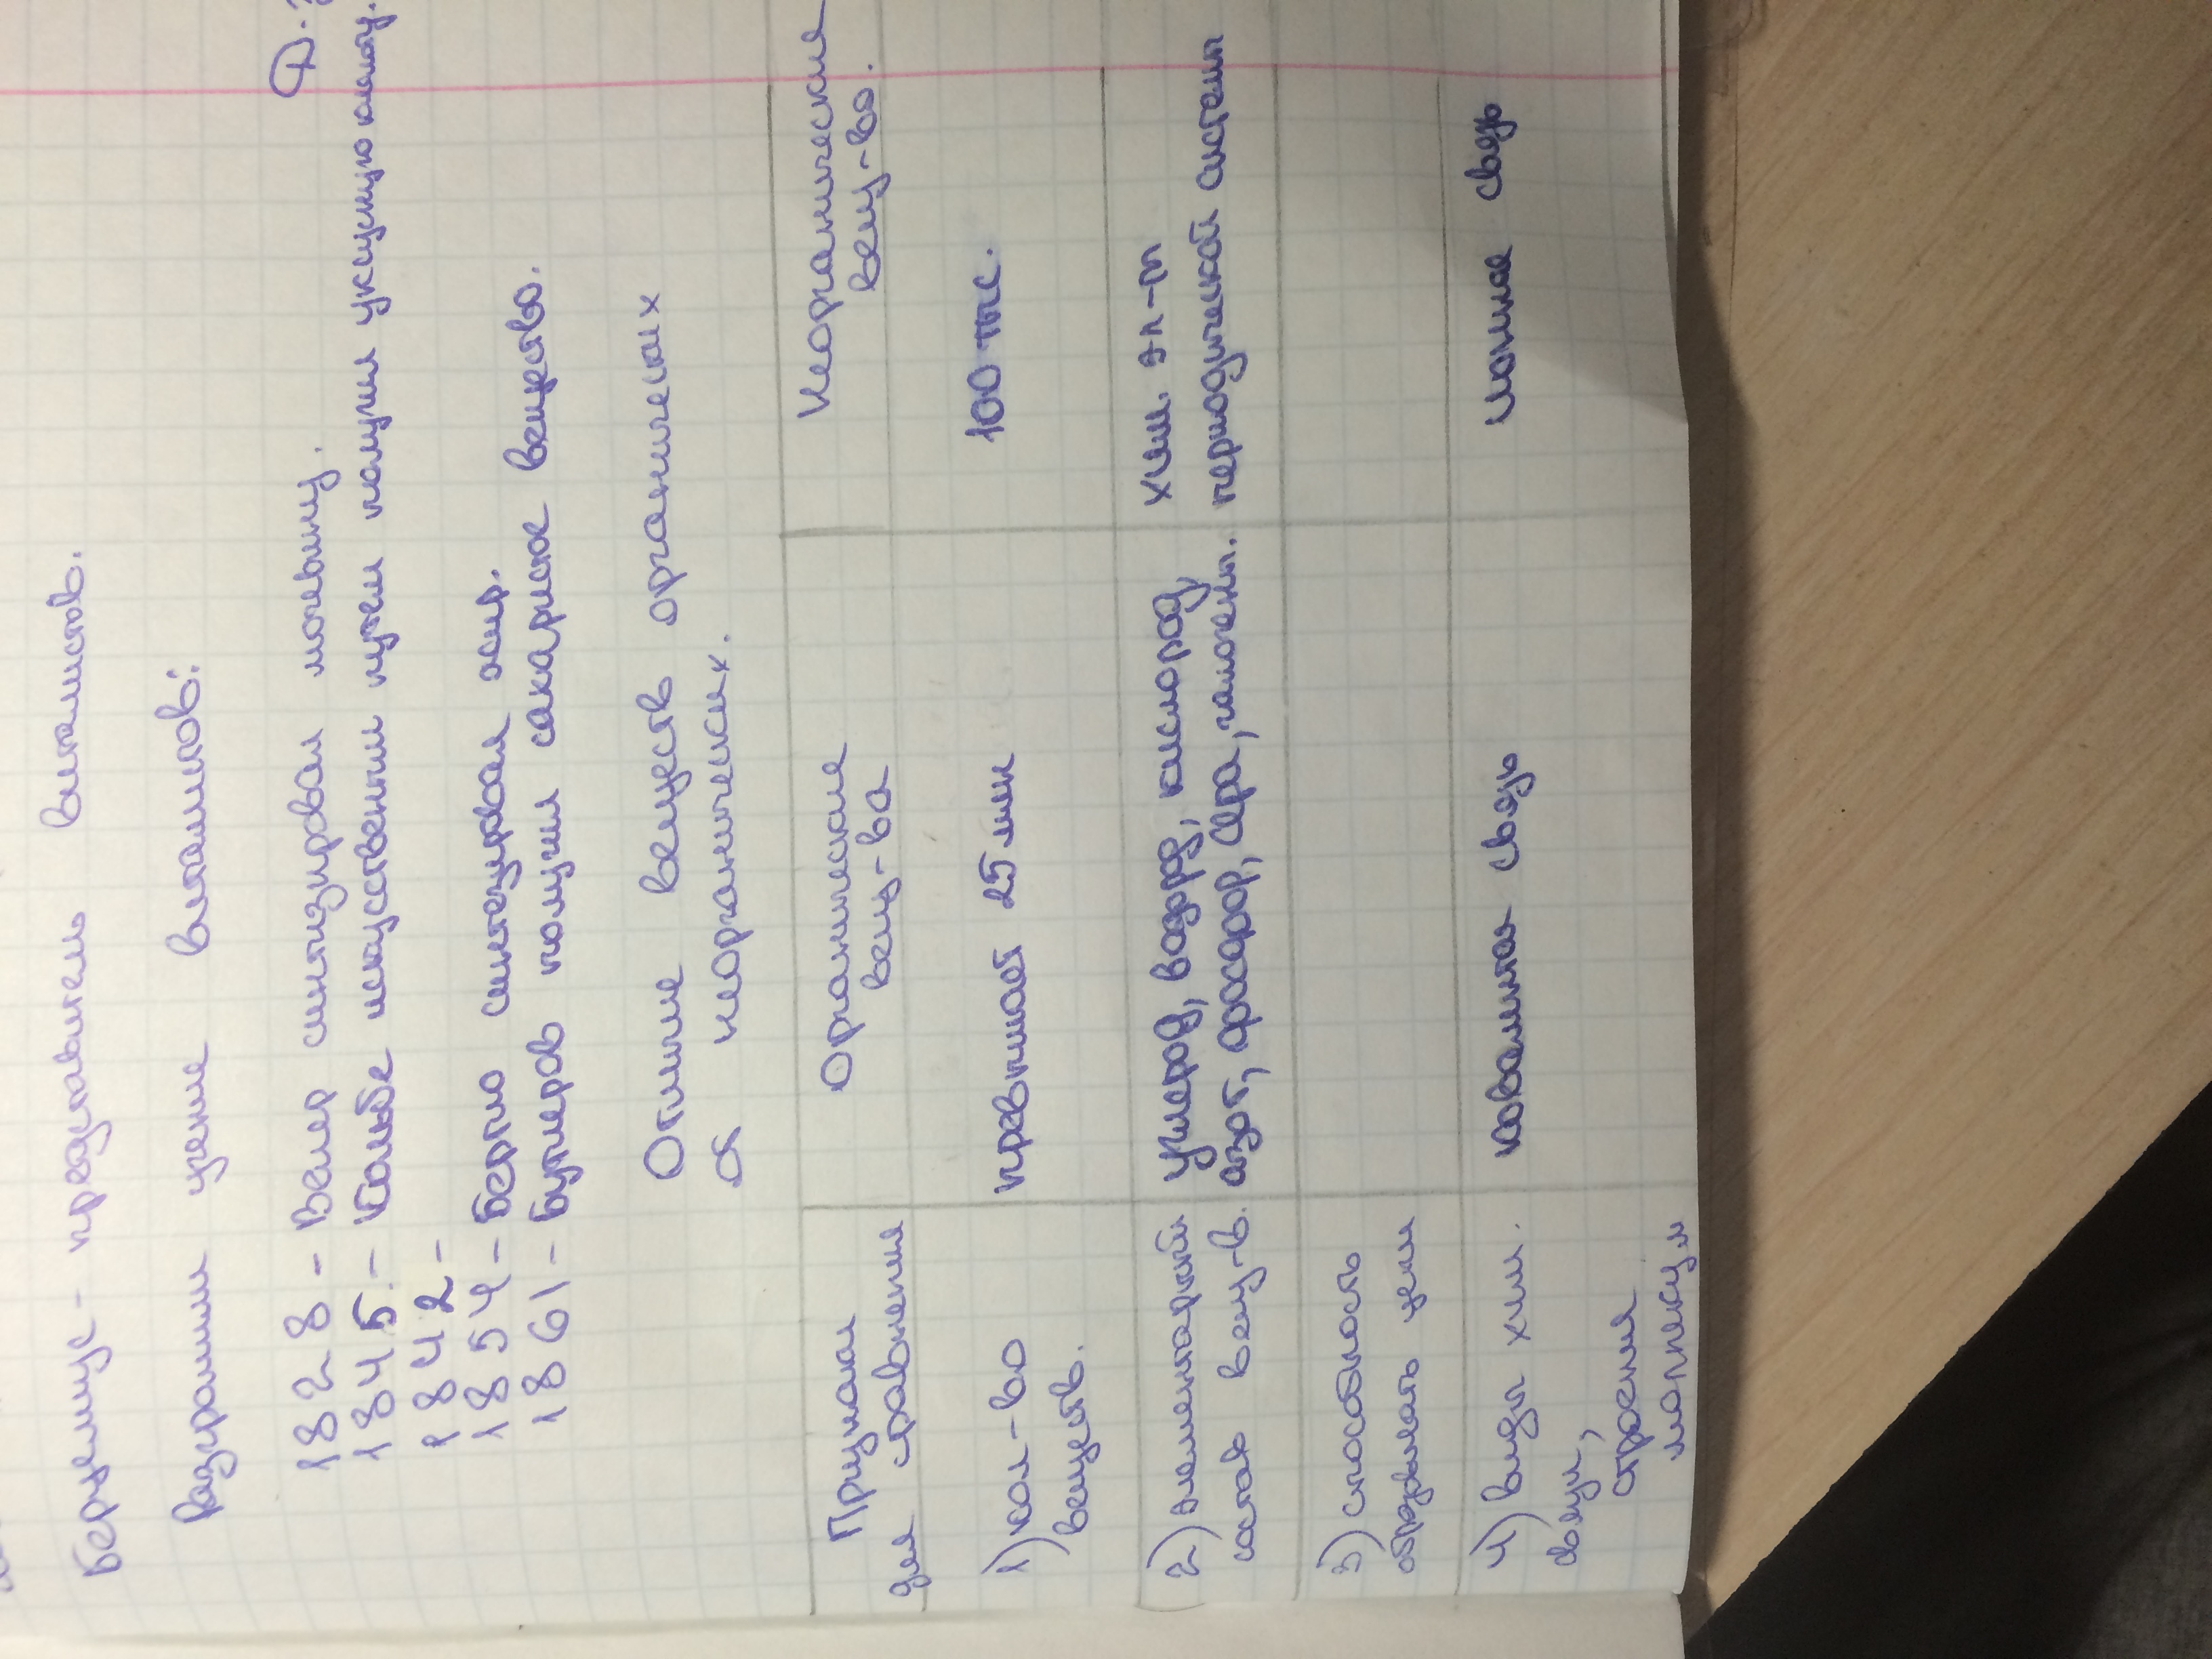 Берцелиус - представитель виталистов.
Разгромили учение виталистов:
1828 - Велер синтизировал мочевину.
Д.з
1845. - Кольбе искусственным путем получил уксусную кислоту.
1842 -
1854 - Бертло синтезировал жир.
1861 - Бутлеров получил сахаристое вещество.
Отличие веществ органических
от неорганических.
Признаки
для сравнения
Органические
вещ-ва
Неорганические
вещ-во.
1) кол-во
веществ.
превышает 25 млн
100 тыс.
2) элементарный
состав вещ-в.
углерод, водород, кислород,
азот, фосфор, сера, галогены.
хим. эл-ты
периодической системы
3) способность
образовывать цепи
4) виды хим.
связи,
строения
молекул
ковалентная связь
ионная связь